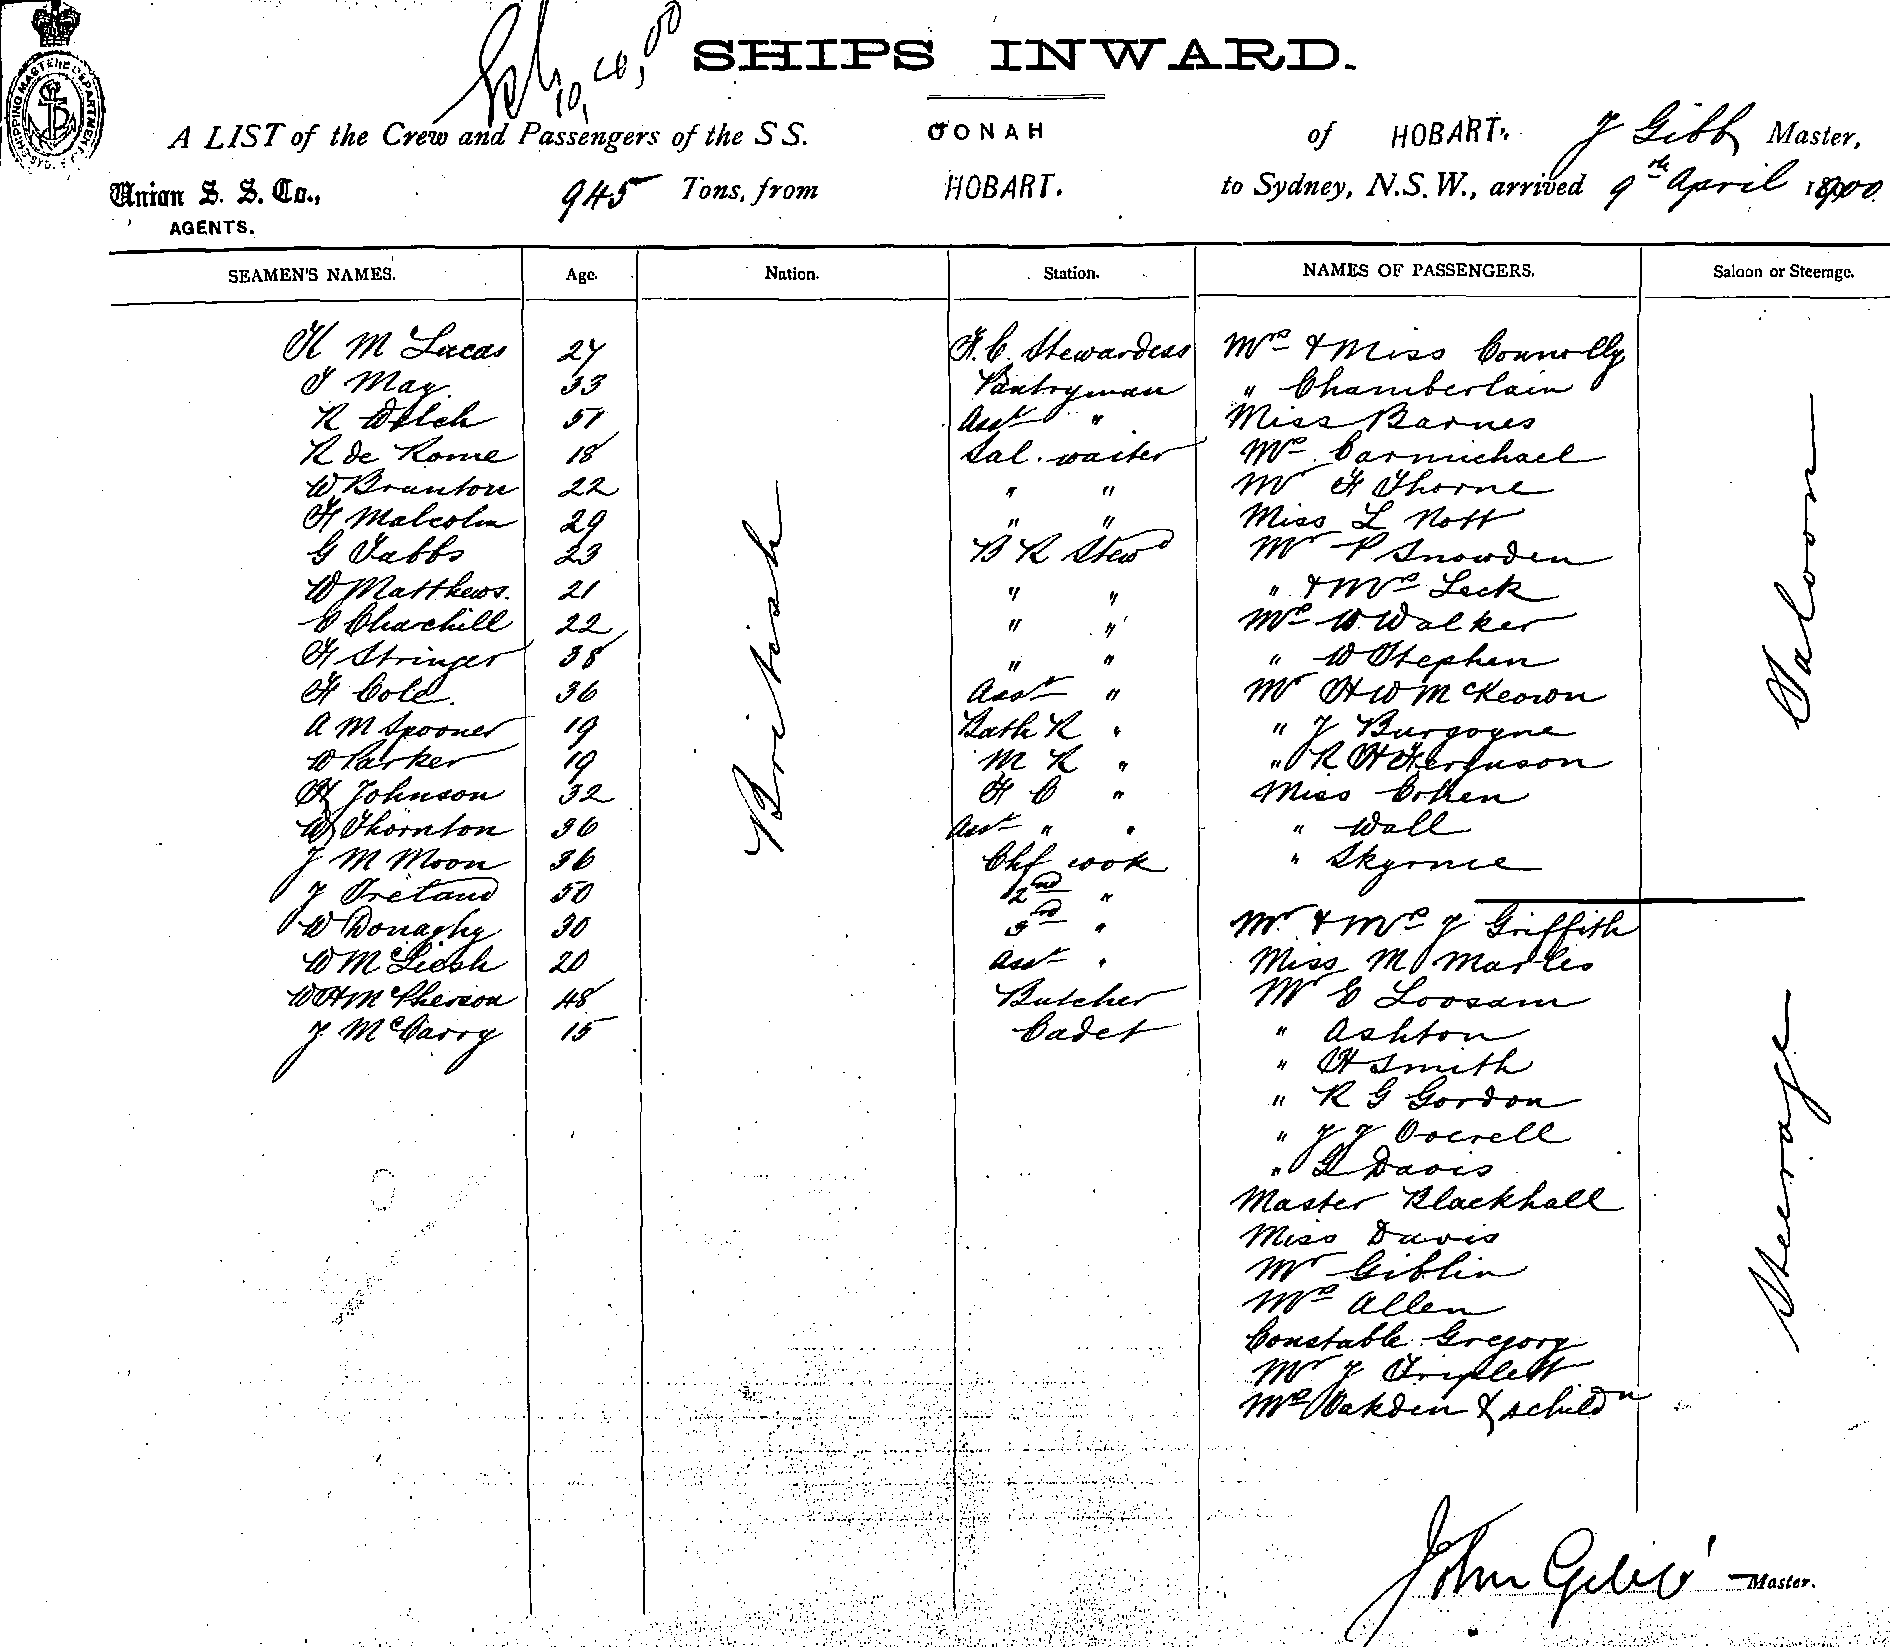 SHIPS INWARD.
10, 4, 00
A LIST of the Crew and Passengers of the S S. OONAH of HOBART. J Gibb Master,
Union S. S. Co., 945 Tons, from HOBART. to Sydney, N.S.W., arrived 9th April 1900
AGENTS.
SEAMEN'S NAMES. Age. Nation. Station. NAMES OF PASSENGERS. Saloon or Steerage.
H M Lucas 27 F. C. Stewardess Mrs & Miss Connolly
T May. 33 Pantryman " Chamberlain
R Welch 51 Asst " Miss Barnes
R de Rome 18 Sal. waiter Mrs Carmichael
W Brunton 22 " " Mr H Thorne
H Malcolm 29 " " Miss L Nott
G Tabbs 23 B R Stewd Mr P Snowden
W Matthews. 21 " " " & Mrs Leck
C Churchill 22 " " Mrs W Walker
H Stringer 38 " " " W Stephen
H Cole. 36 Asst " Mr H W McKeown
A M Spooner 19 Bath R " " J Burgoyne
W Parker 19 M R " " R H Ferguson
H Johnson 32 F C " Miss Cohen
W Thornton 36 Asst " " " Wall
J M Moon 36 Chf cook " Skyrme
J Ireland 50 2nd "
W Donaghy 30 3rd " Mr & Mrs J Griffith
W McLiesh 20 Asst " Miss M Marles
W H McPherson 48 Butcher Mr E Loosam
J McCarry 15 Cadet " Ashton
" H Smith
" R G Gordon
" J J Overell
" G Davis
Master Blackhall
Miss Davis
Mr Giblin
Mrs Allen
Constable Gregory
Mr J Triplett
Mrs Oakden & childn
British
Saloon
Steerage
John Gibb Master.